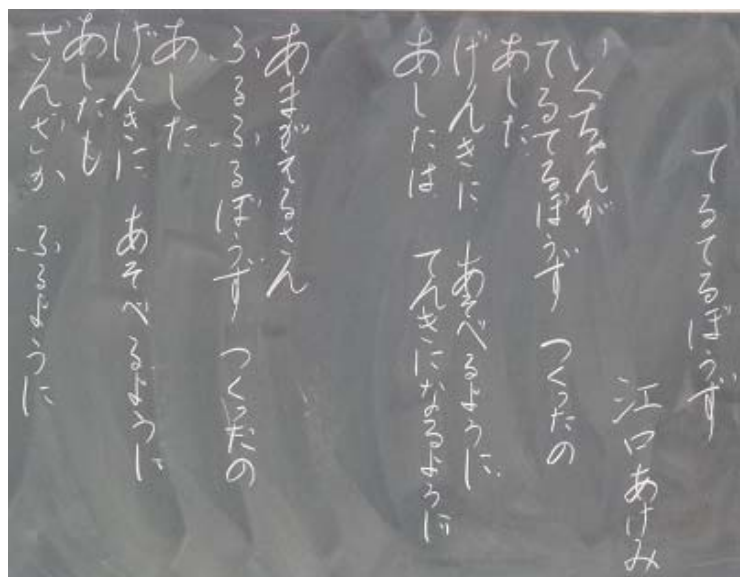 てるてるぼうず
江口あけみ
いくちゃんが
てるてるぼうず つくったの
あした
げんきに あそべるように
あしたは てんきになるように
あまがえるさん
ふるふるぼうず つくったの
あした
げんきに あそべるように
あしたも
ざんざか ふるように